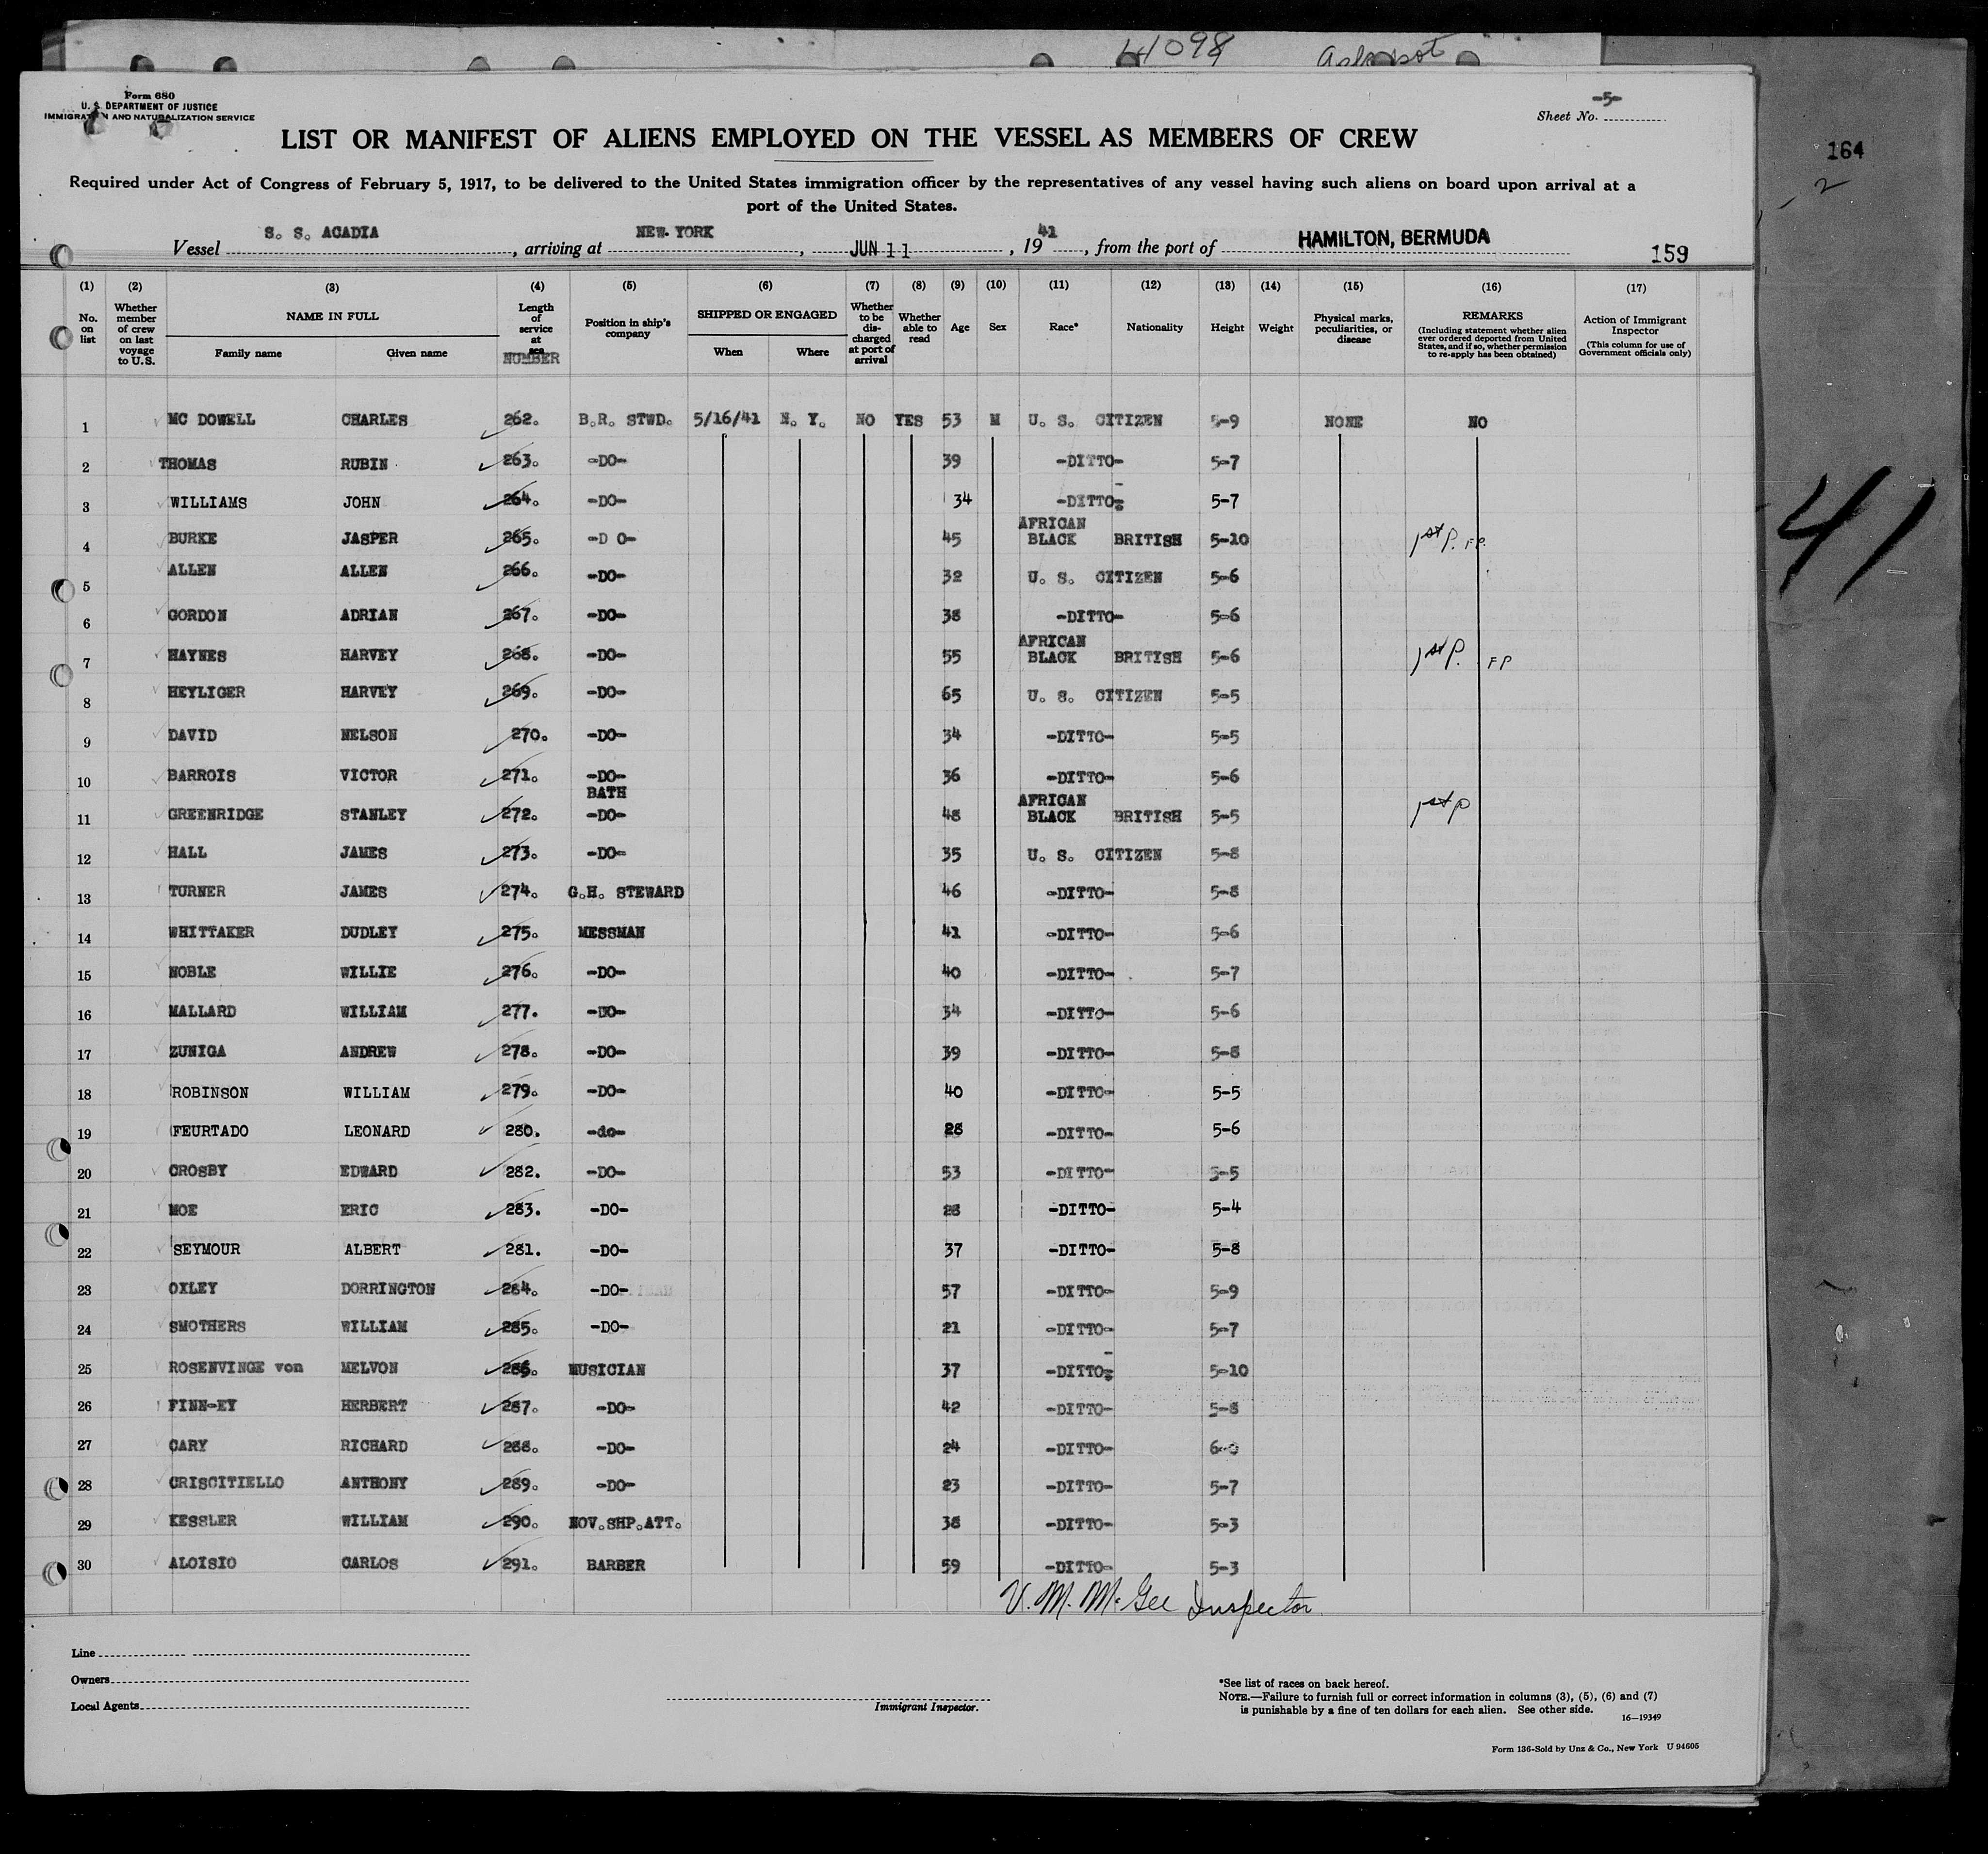 4098
Form 680
U. S. DEPARTMENT OF JUSTICE
IMMIGRATION AND NATURALIZATION SERVICE
-5-
Sheet No.
LIST OR MANIFEST OF ALIENS EMPLOYED ON THE VESSEL AS MEMBERS OF CREW
164
2
Required under Act of Congress of February 5, 1917, to be delivered to the United States immigration officer by the representatives of any vessel having such aliens on board upon arrival at a
port of the United States.
Vessel S. S. ACADIA, arriving at NEW YORK, JUN 11, 1941, from the port of HAMILTON, BERMUDA 159
(1) No. on list
(2) Whether member of crew on last voyage to U.S.
(3) NAME IN FULL Family name Given name
(4) Length of service at sea NUMBER
(5) Position in ship's company
(6) SHIPPED OR ENGAGED When Where
(7) Whether to be discharged at port of arrival
(8) Whether able to read
(9) Age
(10) Sex
(11) Race*
(12) Nationality
(13) Height
(14) Weight
(15) Physical marks, peculiarities, or disease
(16) REMARKS (Including statement whether alien ever ordered deported from United States, and if so, whether permission to re-apply has been obtained)
(17) Action of Immigrant Inspector (This column for use of Government officials only)
1 MC DOWELL CHARLES 262. B.R. STWD. 5/16/41 N. Y. NO YES 53 M U. S. CITIZEN 5-9 NONE NO
2 THOMAS RUBIN 263. -DO- 39 -DITTO- 5-7
3 WILLIAMS JOHN 264. -DO- 34 -DITTO- 5-7
4 BURKE JASPER 265. -D O- 45 AFRICAN BLACK BRITISH 5-10 1st P. FP.
5 ALLEN ALLEN 266. -DO- 32 U. S. CITIZEN 5-6
6 GORDON ADRIAN 267. -DO- 38 -DITTO- 5-6
7 HAYNES HARVEY 268. -DO- 55 AFRICAN BLACK BRITISH 5-6 1st P. FP
8 HEYLIGER HARVEY 269. -DO- 65 U. S. CITIZEN 5-5
9 DAVID NELSON 270. -DO- 34 -DITTO- 5-5
10 BARROIS VICTOR 271. -DO- 36 -DITTO- 5-6
11 GREENRIDGE STANLEY 272. BATH -DO- 48 AFRICAN BLACK BRITISH 5-5 1st P
12 HALL JAMES 273. -DO- 35 U. S. CITIZEN 5-8
13 TURNER JAMES 274. G.H. STEWARD 46 -DITTO- 5-8
14 WHITTAKER DUDLEY 275. MESSMAN 41 -DITTO- 5-6
15 NOBLE WILLIE 276. -DO- 40 -DITTO- 5-7
16 MALLARD WILLIAM 277. -DO- 34 -DITTO- 5-6
17 ZUNIGA ANDREW 278. -DO- 39 -DITTO- 5-8
18 ROBINSON WILLIAM 279. -DO- 40 -DITTO- 5-5
19 FEURTADO LEONARD 280. -do- 28 -DITTO- 5-6
20 CROSBY EDWARD 282. -DO- 53 -DITTO- 5-5
21 MOE ERIC 283. -DO- 28 -DITTO- 5-4
22 SEYMOUR ALBERT 281. -DO- 37 -DITTO- 5-8
23 OXLEY DORRINGTON 284. -DO- 57 -DITTO- 5-9
24 SMOTHERS WILLIAM 285. -DO- 21 -DITTO- 5-7
25 ROSENVINGE von MELVON 286. MUSICIAN 37 -DITTO- 5-10
26 FINN-EY HERBERT 287. -DO- 42 -DITTO- 5-8
27 CARY RICHARD 288. -DO- 24 -DITTO- 6-0
28 CRISCITIELLO ANTHONY 289. -DO- 23 -DITTO- 5-7
29 KESSLER WILLIAM 290. NOV.SHP.ATT. 38 -DITTO- 5-3
30 ALOISIO CARLOS 291. BARBER 59 -DITTO- 5-3
41
V. M. McGee Inspector
Line
Owners
Local Agents
Immigrant Inspector.
*See list of races on back hereof.
NOTE.—Failure to furnish full or correct information in columns (3), (5), (6) and (7)
is punishable by a fine of ten dollars for each alien. See other side.
16—19349
Form 136-Sold by Unz & Co., New York U 94605